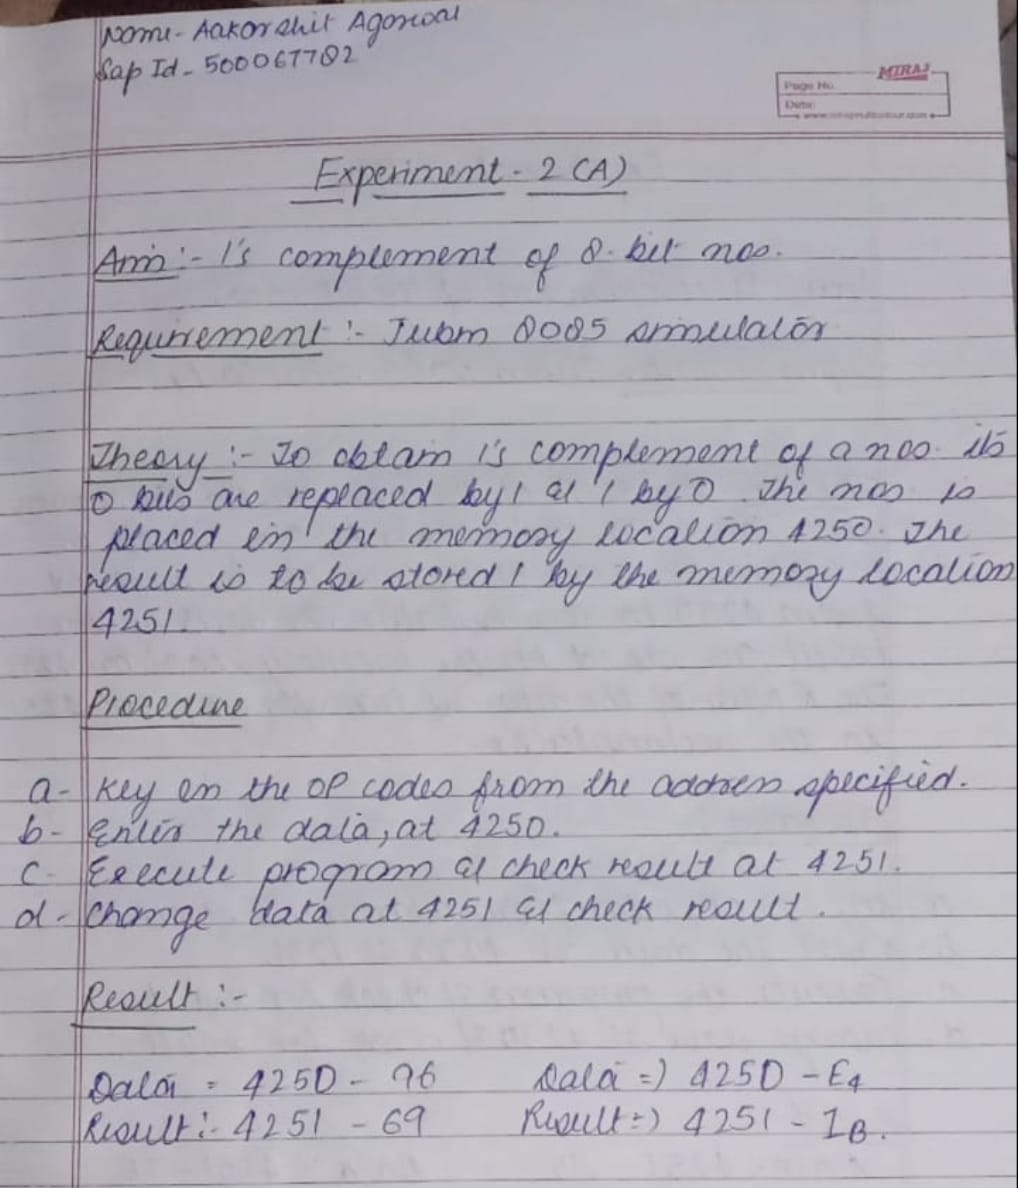 Name - Aakarshit Agarwal
Sap Id - 500067702
MIRAJ
Page No.
Date:
Experiment - 2 (A)
Aim :- 1's complement of 8-bit nos.
Requirement :- Jubm 8085 simulator
Theory :- To obtain 1's complement of a nos. its
0 bits are replaced by 1 & 1 by 0. The nos is
placed in the memory location 4250. The
result is to be stored / by the memory location
4251.
Procedure
a- Key on the OP codes from the address specified.
b- Enter the data, at 4250.
c- Execute program & check result at 4251.
d- Change data at 4251 & check result.
Result :-
Data = 4250 - 96 Data => 4250 - E4
Result :- 4251 - 69 Result => 4251 - 1B.